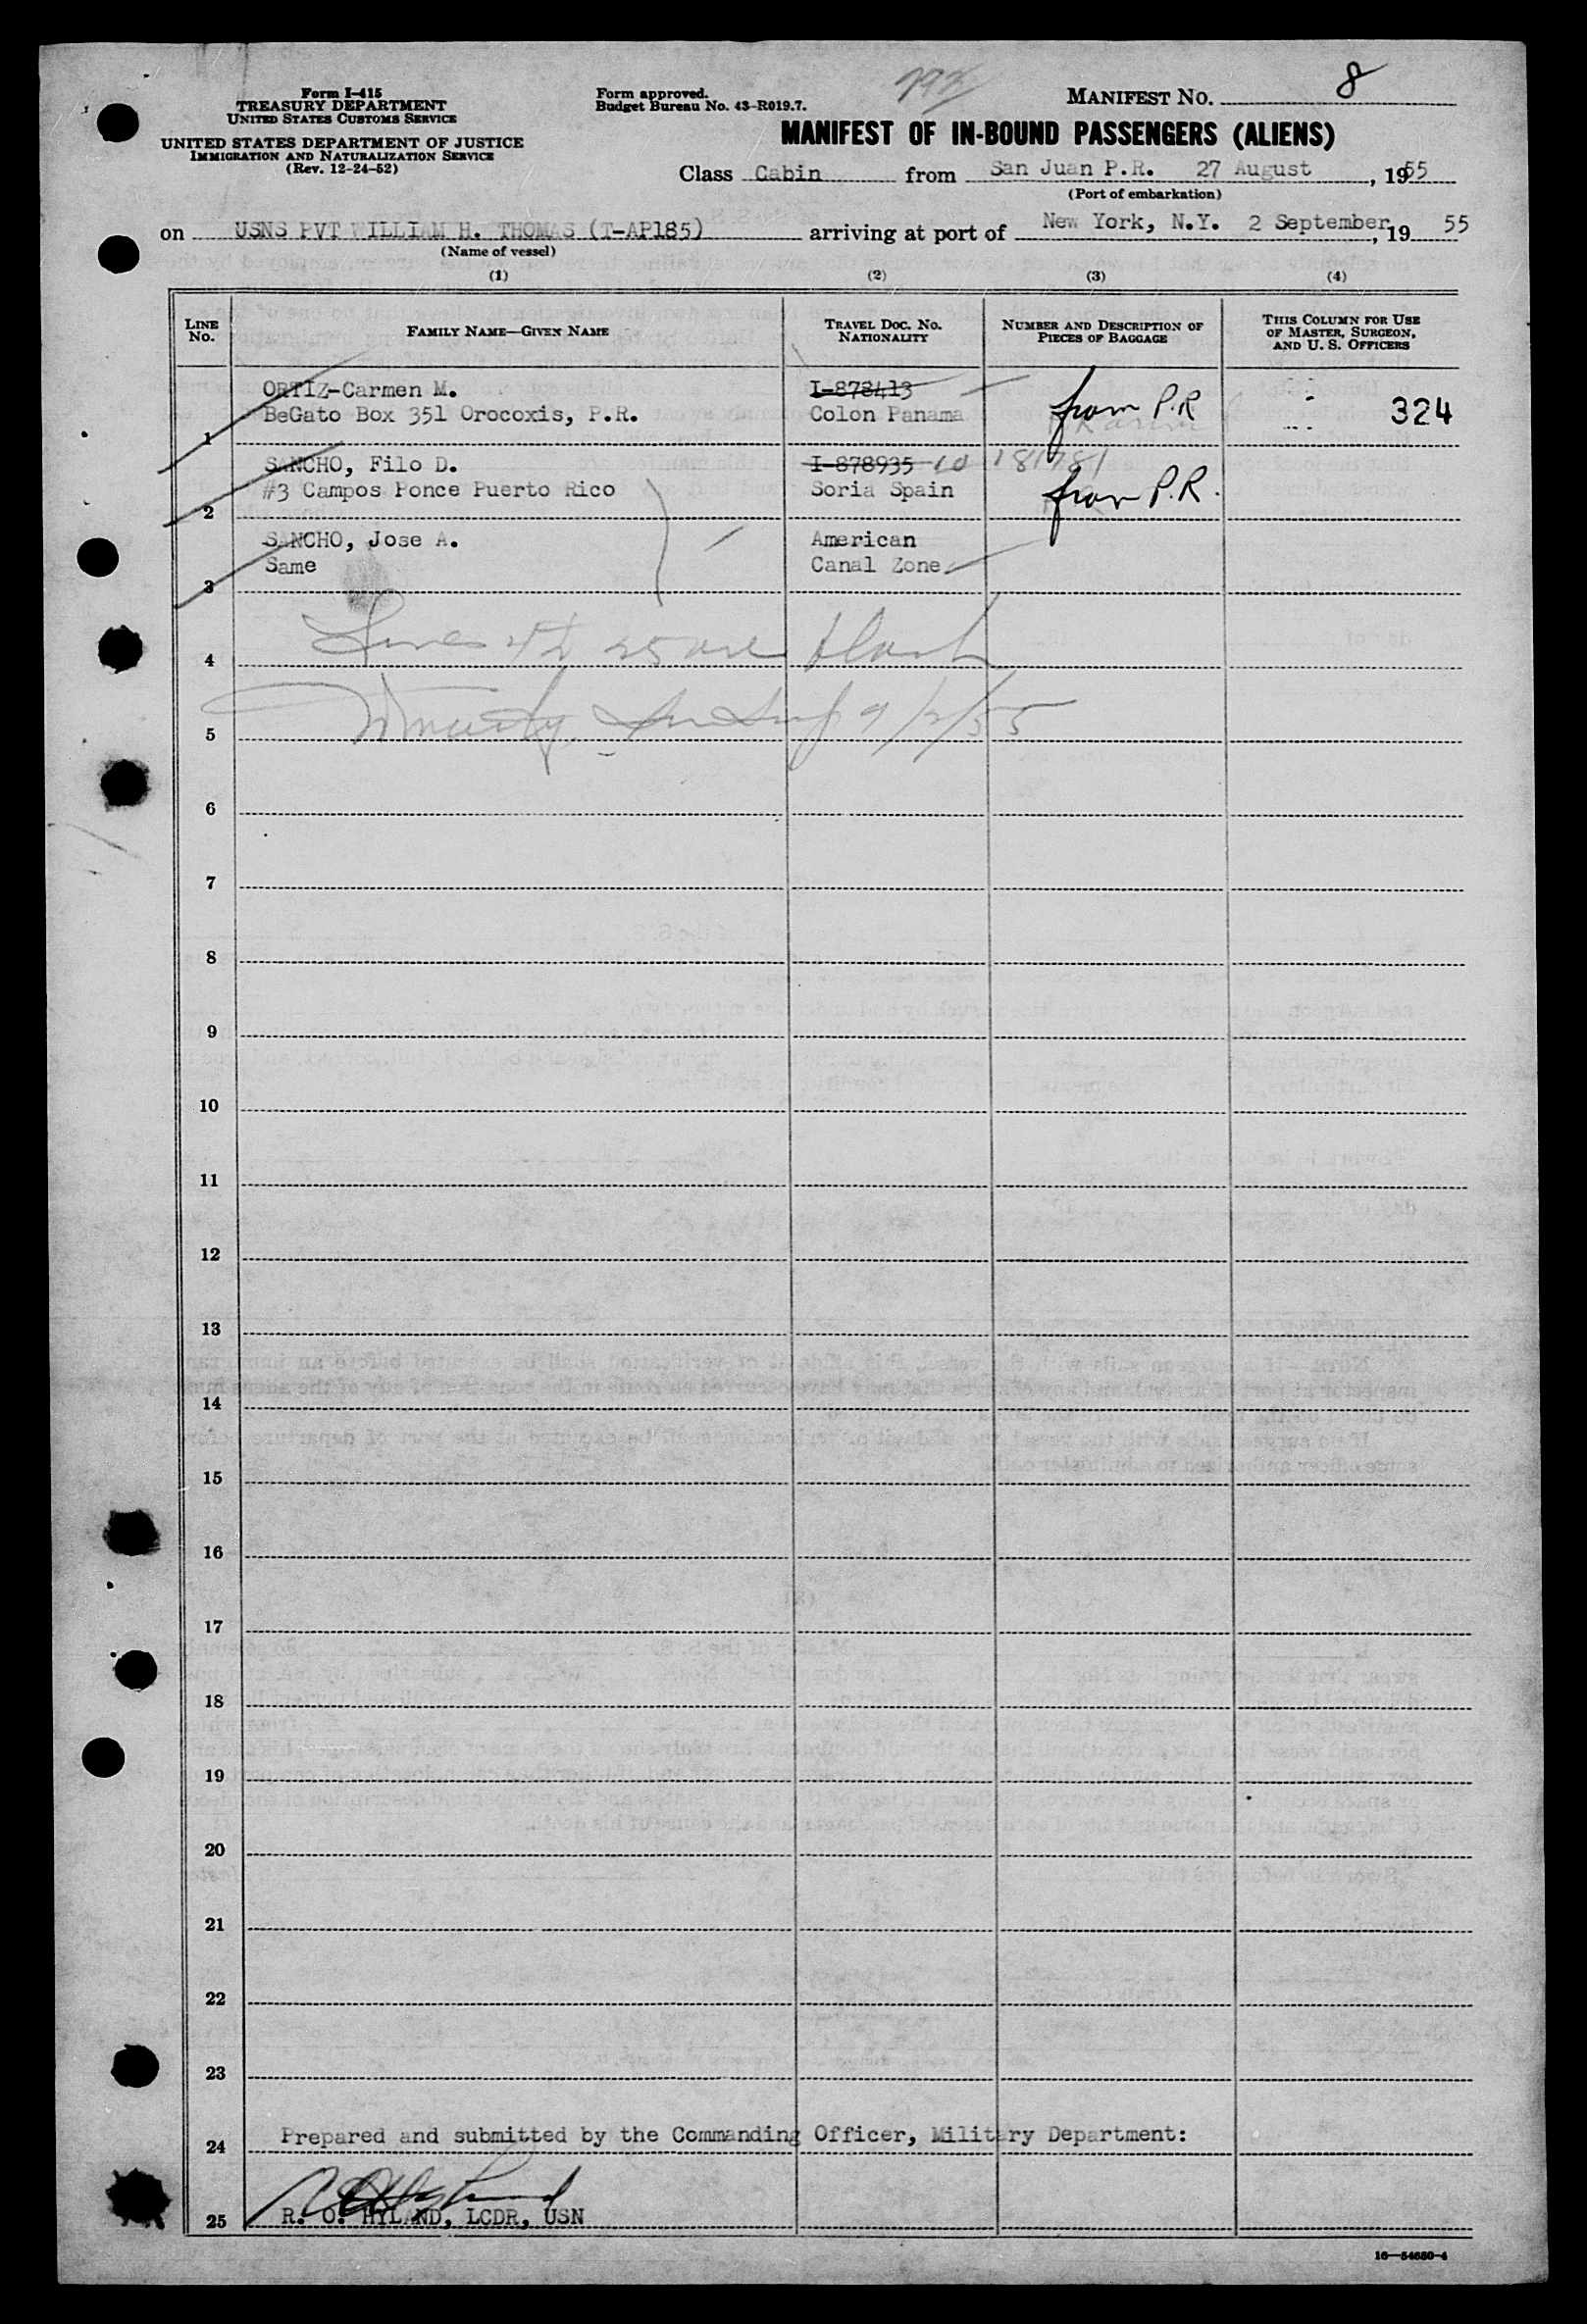 Form I-415
TREASURY DEPARTMENT
UNITED STATES CUSTOMS SERVICE
UNITED STATES DEPARTMENT OF JUSTICE
IMMIGRATION AND NATURALIZATION SERVICE
(Rev. 12-24-52)
Form approved.
Budget Bureau No. 43-R019.7.
MANIFEST NO. 8
MANIFEST OF IN-BOUND PASSENGERS (ALIENS)
Class Cabin from San Juan P.R. 27 August, 1955
(Port of embarkation)
on USNS PVT WILLIAM H. THOMAS (T-AP185) arriving at port of New York, N.Y. 2 September, 19 55
(Name of vessel)
(1) (2) (3) (4)
LINE NO. FAMILY NAME—GIVEN NAME TRAVEL DOC. NO. NATIONALITY NUMBER AND DESCRIPTION OF PIECES OF BAGGAGE THIS COLUMN FOR USE OF MASTER, SURGEON, AND U. S. OFFICERS
ORTIZ-Carmen M. I-878413
1 BeGato Box 351 Orocoxis, P.R. Colon Panama from P.R 324
SANCHO, Filo D. I-878935 10 181781
2 #3 Campos Ponce Puerto Rico Soria Spain from P.R.
SANCHO, Jose A. American
3 Same Canal Zone
4 Lines 4 to 25 are blank
5 9/2/55
6
7
8
9
10
11
12
13
14
15
16
17
18
19
20
21
22
23
24 Prepared and submitted by the Commanding Officer, Military Department:
25 R. O. HYLAND, LCDR, USN
16—54650-4